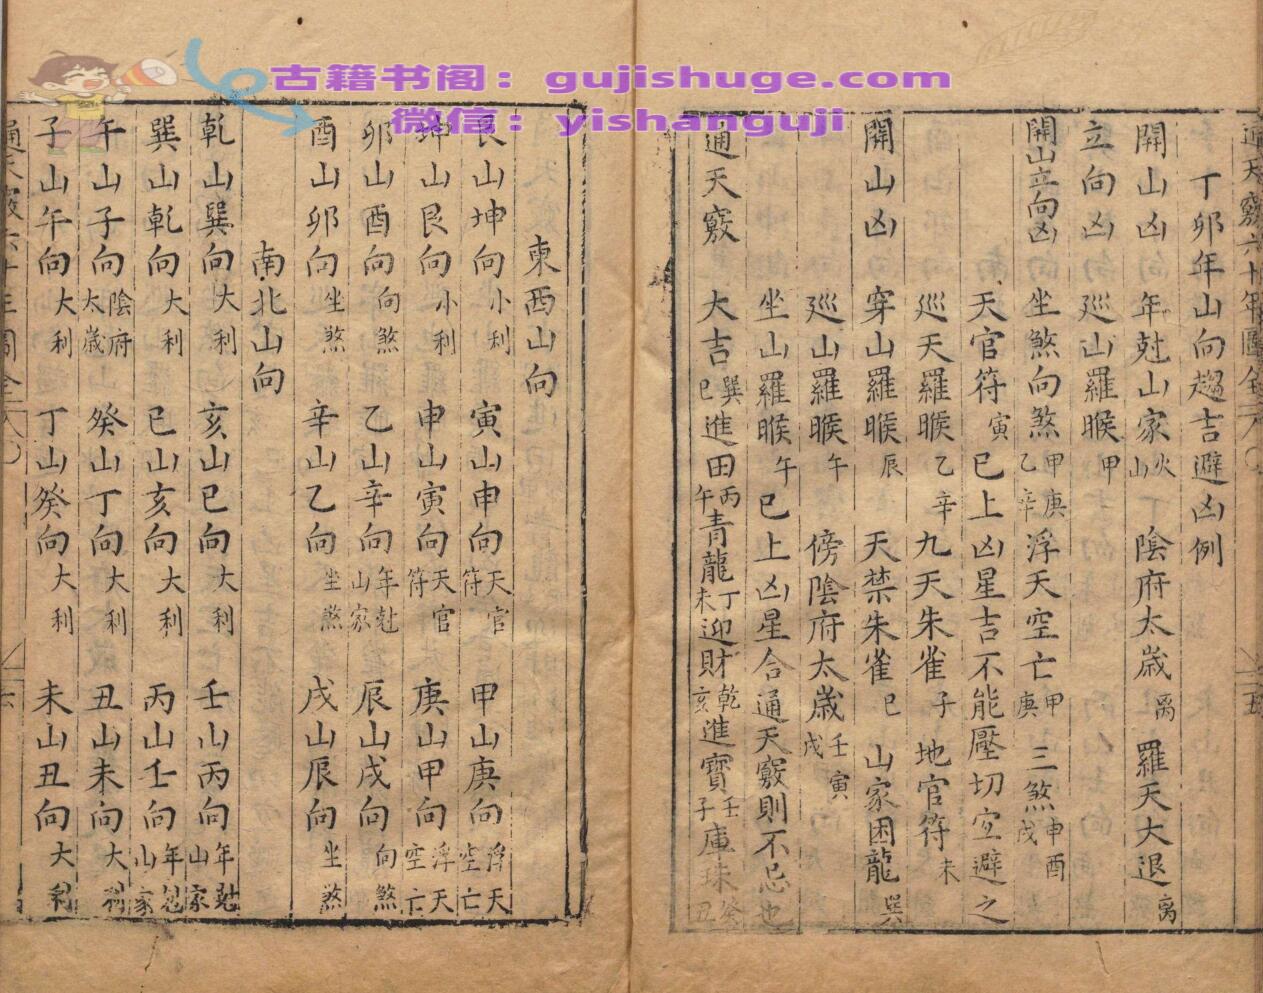 古籍书阁：gujishuge.com
微信：yishanguji
通天竅六十年圖全
丁卯年山向趨吉避凶例
開山凶 年尅山家火山 陰府太歲離 羅天大退離
立向凶 巡山羅睺甲
開山立向凶 坐煞向煞甲庚乙辛 浮天空亡甲庚 三煞申酉戌
天官符寅 已上凶星吉不能壓切宜避之
巡天羅睺乙辛 九天朱雀子 地官符未
開山凶 穿山羅睺辰 天禁朱雀巳 山家困龍巽
巡山羅睺午 傍陰府太歲壬寅戌
坐山羅睺午 已上凶星合通天竅則不忌也
通天竅 大吉巽巳 進田丙午 青龍丁未 迎財乾亥 進寶壬子 庫珠癸丑
東西山向
艮山坤向小利 寅山申向天官符 甲山庚向浮天空亡
坤山艮向小利 申山寅向天官符 庚山甲向浮天空亡
卯山酉向向煞 乙山辛向年尅山家 辰山戌向向煞
酉山卯向坐煞 辛山乙向坐煞 戌山辰向坐煞
南北山向
乾山巽向大利 亥山巳向大利 壬山丙向年尅山家
巽山乾向大利 巳山亥向大利 丙山壬向年尅山家
午山子向陰府太歲 癸山丁向大利 丑山未向大利
子山午向大利 丁山癸向大利 未山丑向大利